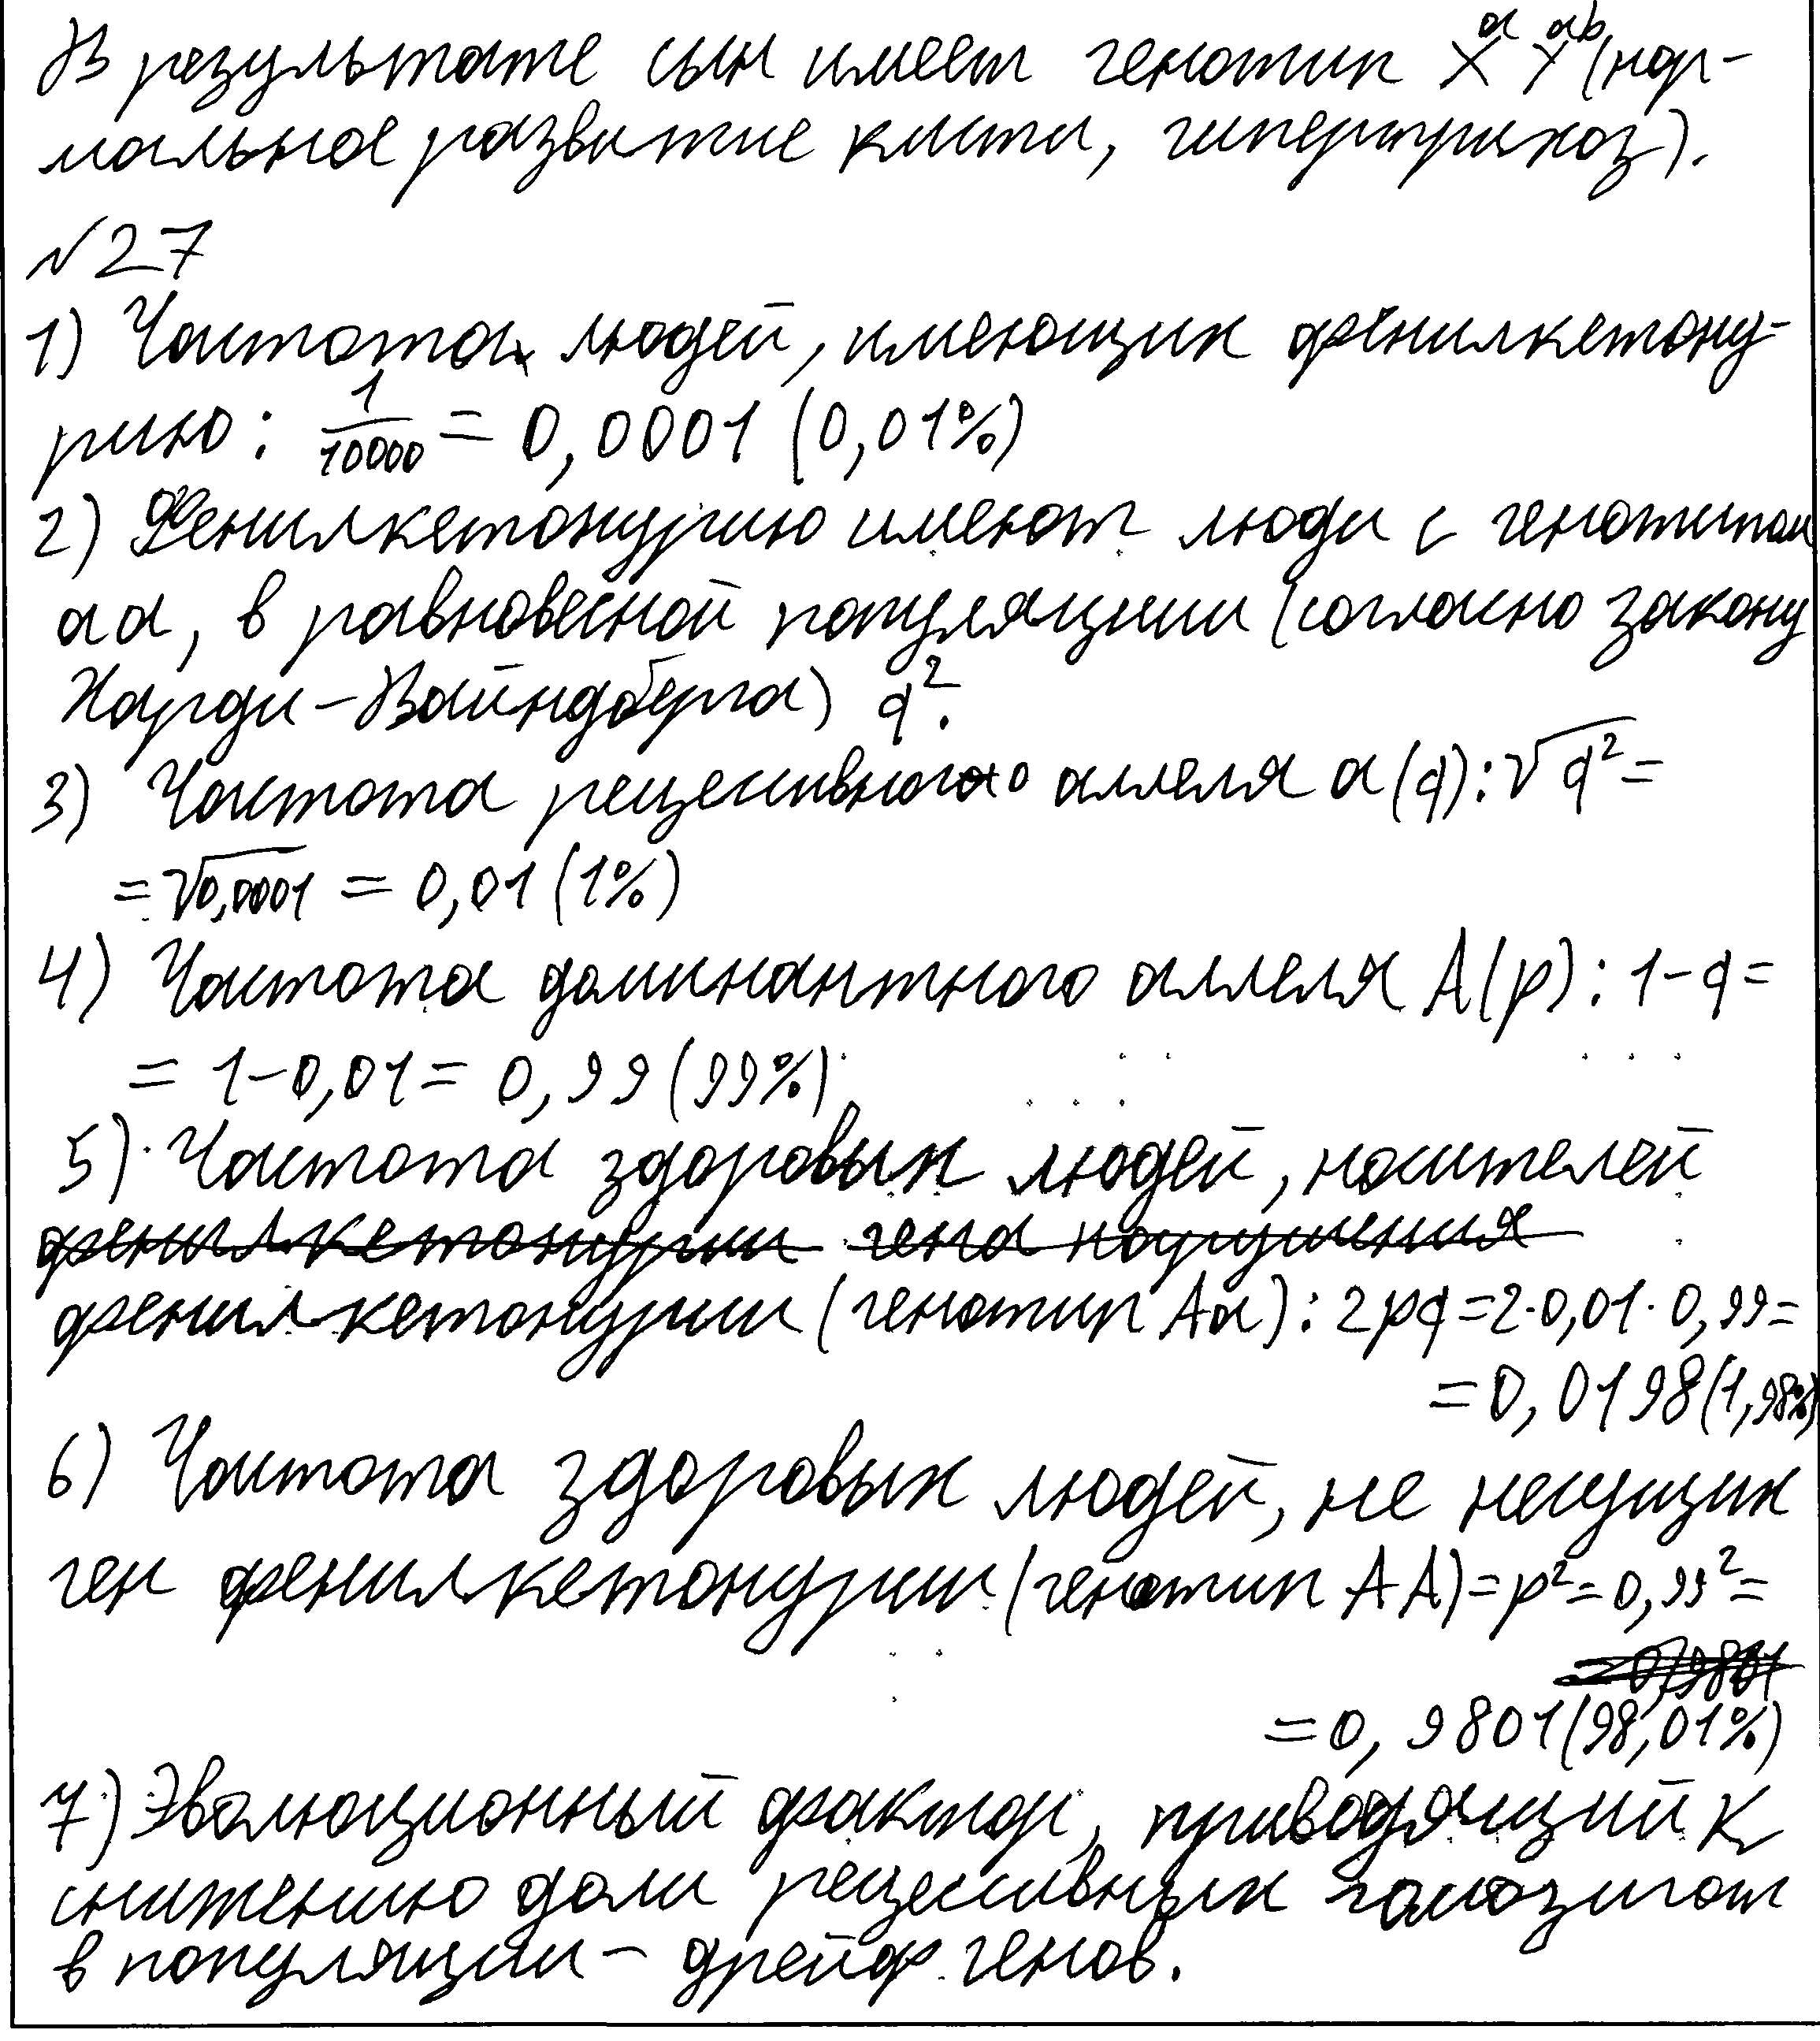 В результате сын имеет генотип XᵃYᵃᵇ (нор-
мальное развитие кисти, гипертрихоз).
№27
1) Частота людей, имеющих фенилкетону-
рию: 1/10000 = 0,0001 (0,01%)
2) Фенилкетонурию имеют люди с генотипом
аа, в равновесной популяции (согласно закону
Харди-Вайндберга) q².
3) Частота рецессивного аллеля а(q): √q² =
= √0,0001 = 0,01 (1%)
4) Частота доминантного аллеля А(р): 1-q =
= 1-0,01 = 0,99 (99%)
5) Частота здоровых людей, носителей
фенилкетонурии гена нарушения
фенилкетонурии (генотип Аа): 2pq = 2·0,01·0,99 =
= 0,0198 (1,98%)
6) Частота здоровых людей, не несущих
ген фенилкетонурии (генотип АА) = p² = 0,99² =
= 0,9801
= 0,9801 (98,01%)
7) Эволюционный фактор, приводящий к
снижению доли рецессивных гомозигот
в популяции - дрейф генов.